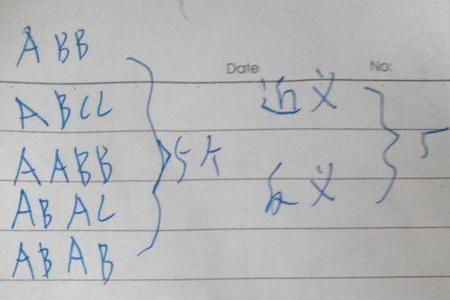 ABB
Date No:
ABCC
近义
AABB
5个
5
ABAC
反义
ABAB